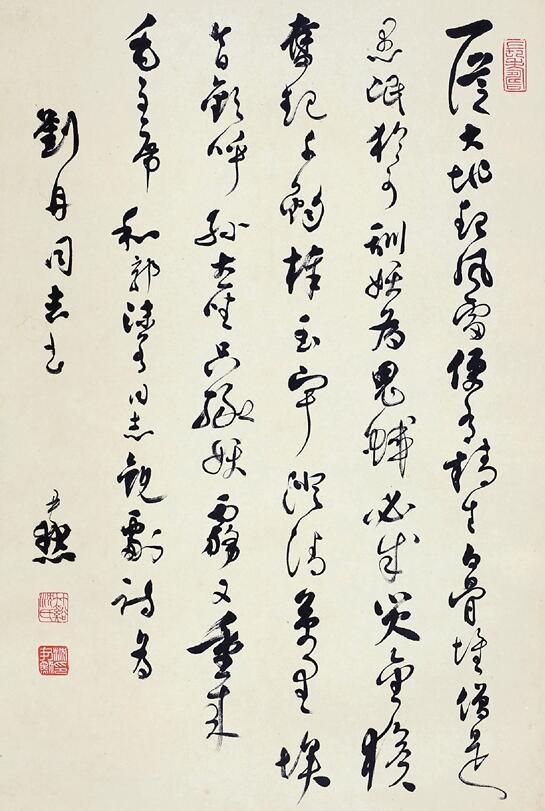 一從大地起風雷便有精生白骨堆僧是
愚氓猶可訓妖為鬼蜮必成災金猴
奮起千鈞棒玉宇澄清萬里埃
今日歡呼孫大聖只緣妖霧又重來
毛主席和郭沫若同志觀劇詩為
劉丹同志書
尹默